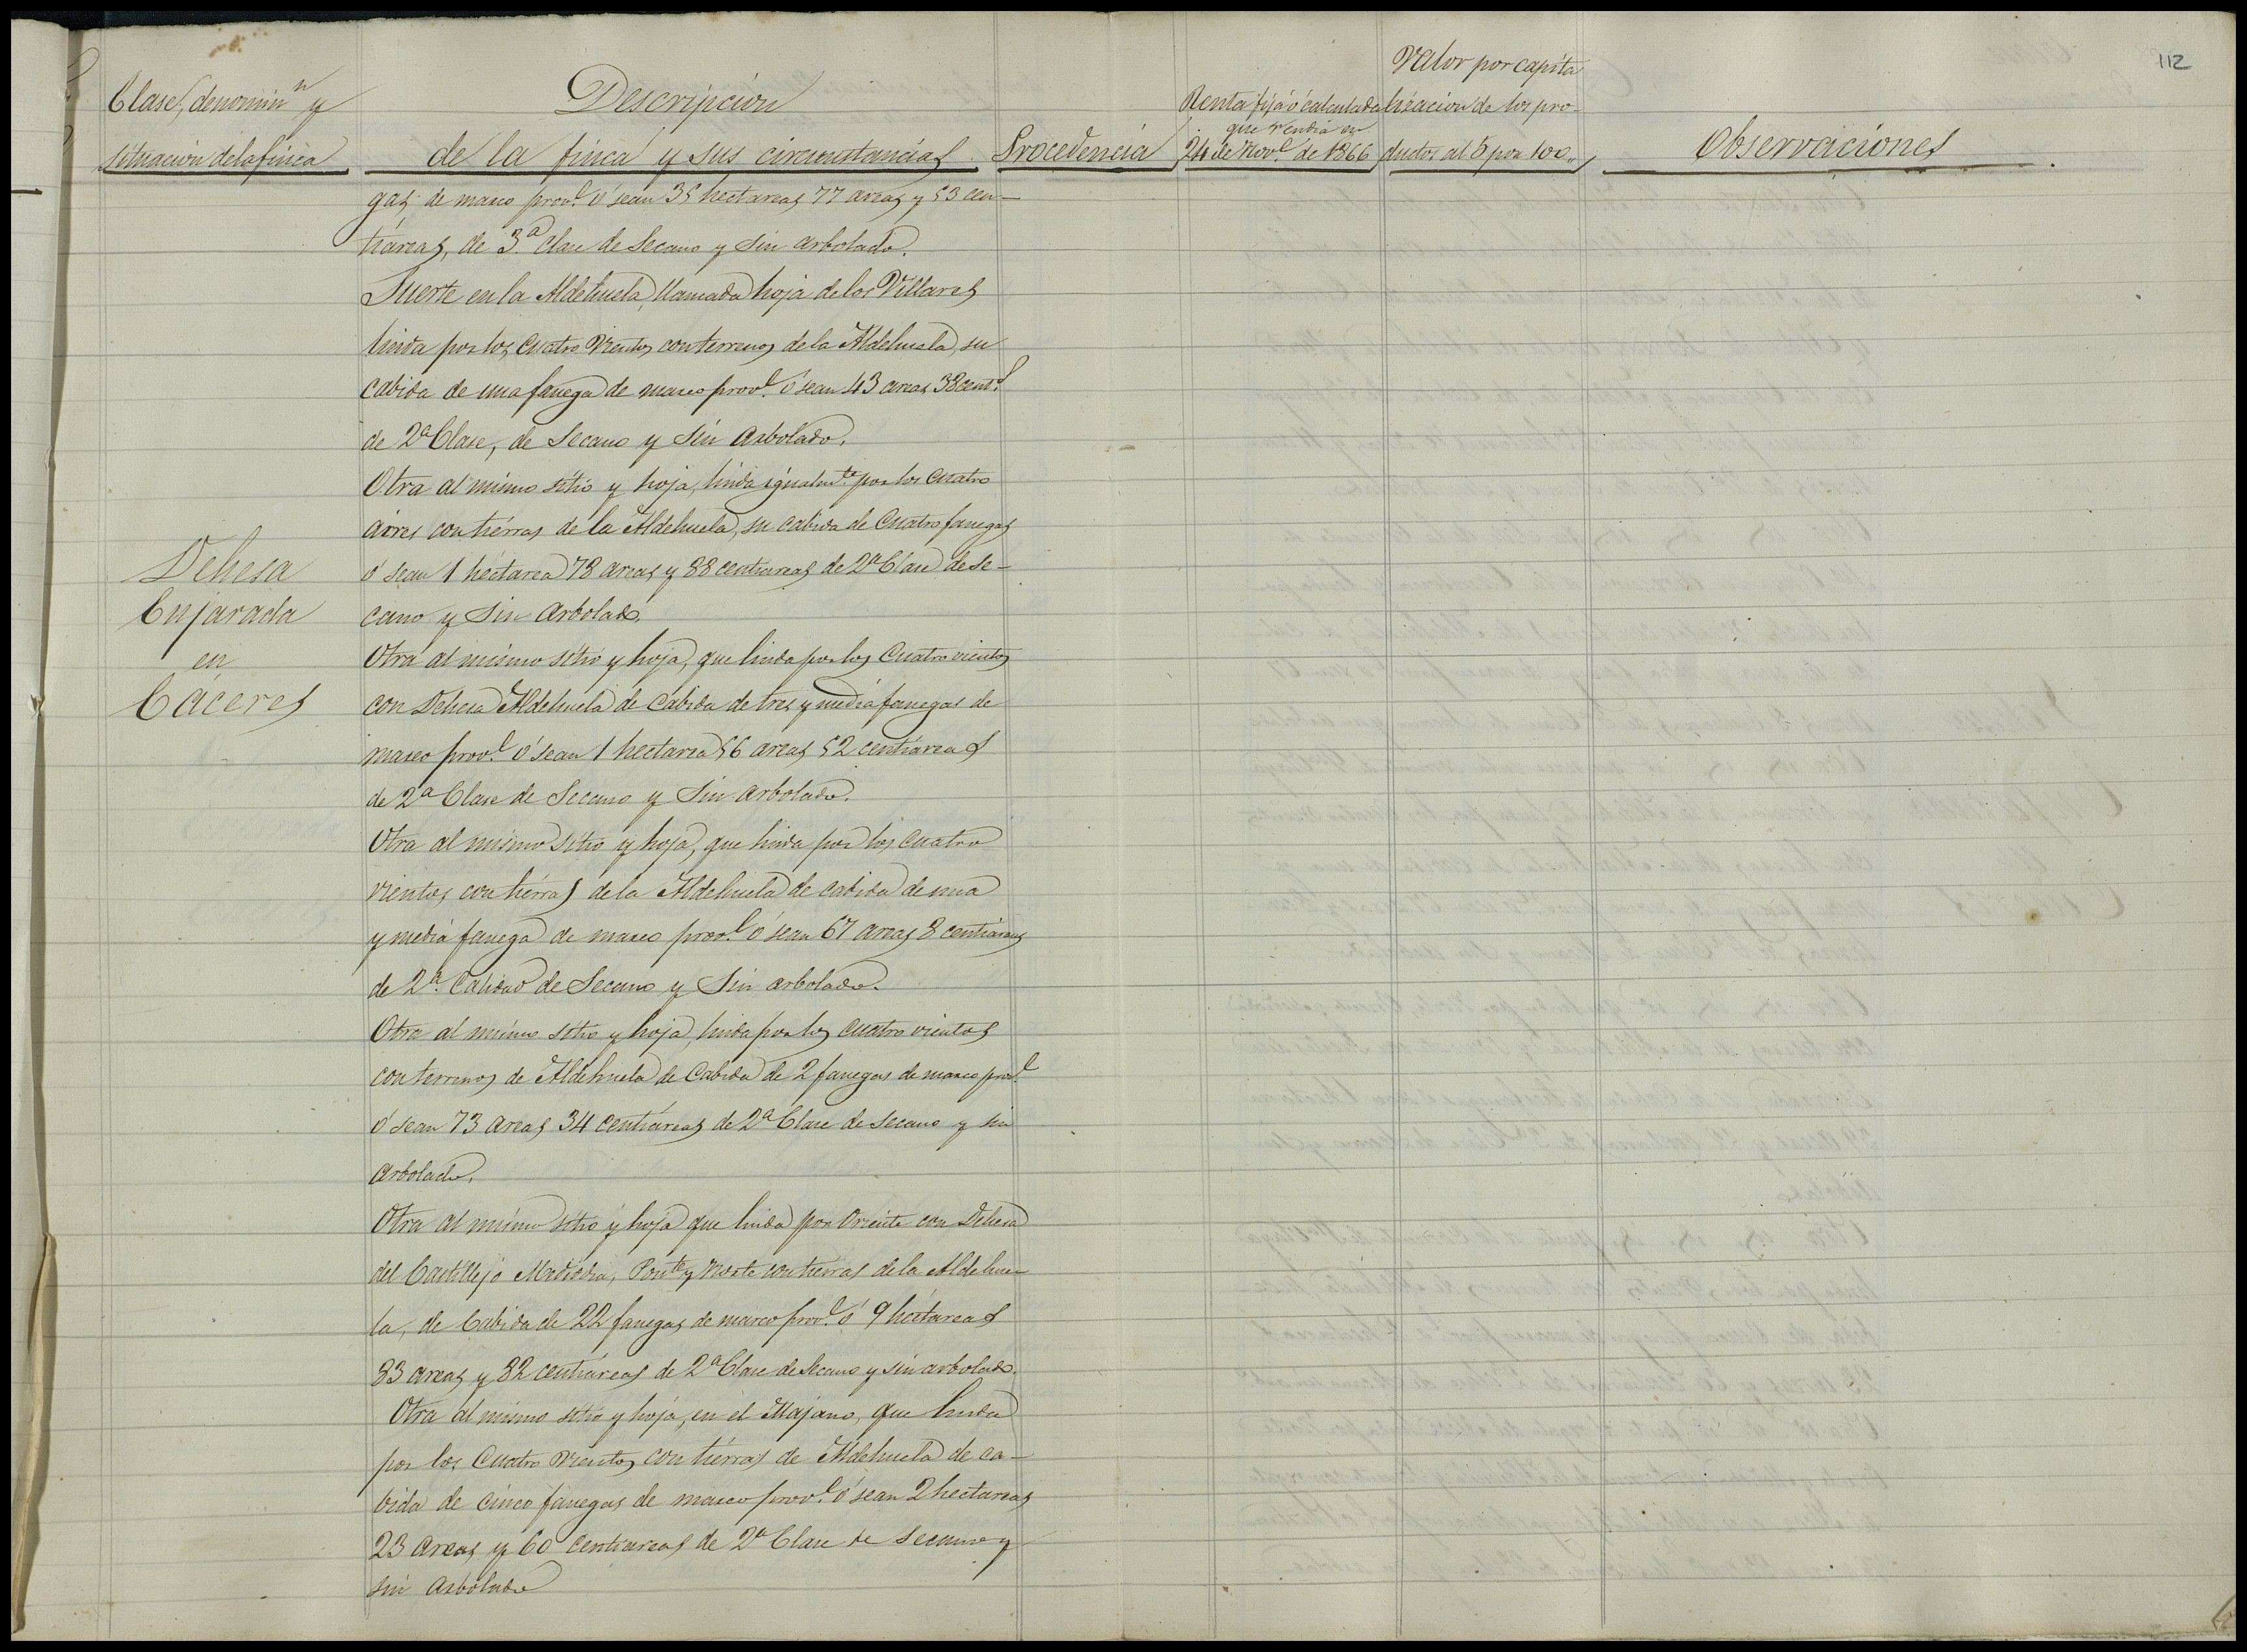 112
Clase, denominn y
situación de la finca
Descripción
de la finca y sus circunstancias
Procedencia
Renta fija ó calculada
que rendia en
24 de Novl de 1866
Valor por capita
lización de los pro-
ductos al 5 por 100
Observaciones
Dehesa
Enjarada
en
Cáceres
gas, de marco provl. ó sean 35 hectareas 77 areas y 53 cen-
tiáreas, de 3.ª clase de Secano y sin arbolado.
Suerte en la Aldehuela, llamada hoja de los Villares
linda por los cuatro Vientos con terrenos de la Aldehuela, su
cabida de una fanega de marco provl. ó sean 43 areas 38 cents
de 2ª Clase, de Secano y sin Arbolado.
Otra al mismo sitio y hoja, linda igualmte por los cuatro
aires con tierras de la Aldehuela, su cabida de Cuatro fanegas
ó sean 1 hectarea 78 areas y 88 centiareas de 2ª Clase de Se-
cano y sin Arbolado.
Otra al mismo sitio y hoja, que linda por los Cuatro vientos
con Dehesa Aldehuela de cabida de tres y media fanegas de
marco provl. ó sean 1 hectarea 56 areas 52 centiareas
de 2ª Clase de Secano y Sin arbolado.
Otra al mismo sitio y hoja, que linda por los cuatro
vientos con tierras de la Aldehuela de cabida de una
y media fanega de marco provl. ó sean 67 areas 8 centiáreas
de 2ª. Calidad de Secano y Sin arbolado.
Otra al mismo sitio y hoja, linda por los cuatro vientos
con terrenos de Aldehuela de Cabida de 2 fanegas de marco provl.
ó sean 73 areas 34 centiáreas de 2ª Clase de secano y sin
Arbolado.
Otra al mismo sitio y hoja que linda por Oriente con Dehesa
del Castillejo Mediodia, Ponte y Norte con tierras de la Aldehue-
la, de Cabida de 22 fanegas de marco provl. ó 9 hectareas
83 areas y 82 centiáreas de 2ª Clase de Secano y sin arbolado.
Otra al mismo sitio y hoja, en el Majano, que linda
por los Cuatro Vientos con tierras de Aldehuela de ca-
bida de cinco fanegas de marco provl. ó sean 2 hectareas
23 areas y 60 centiareas de 2ª Clase de Secano y
sin Arbolado